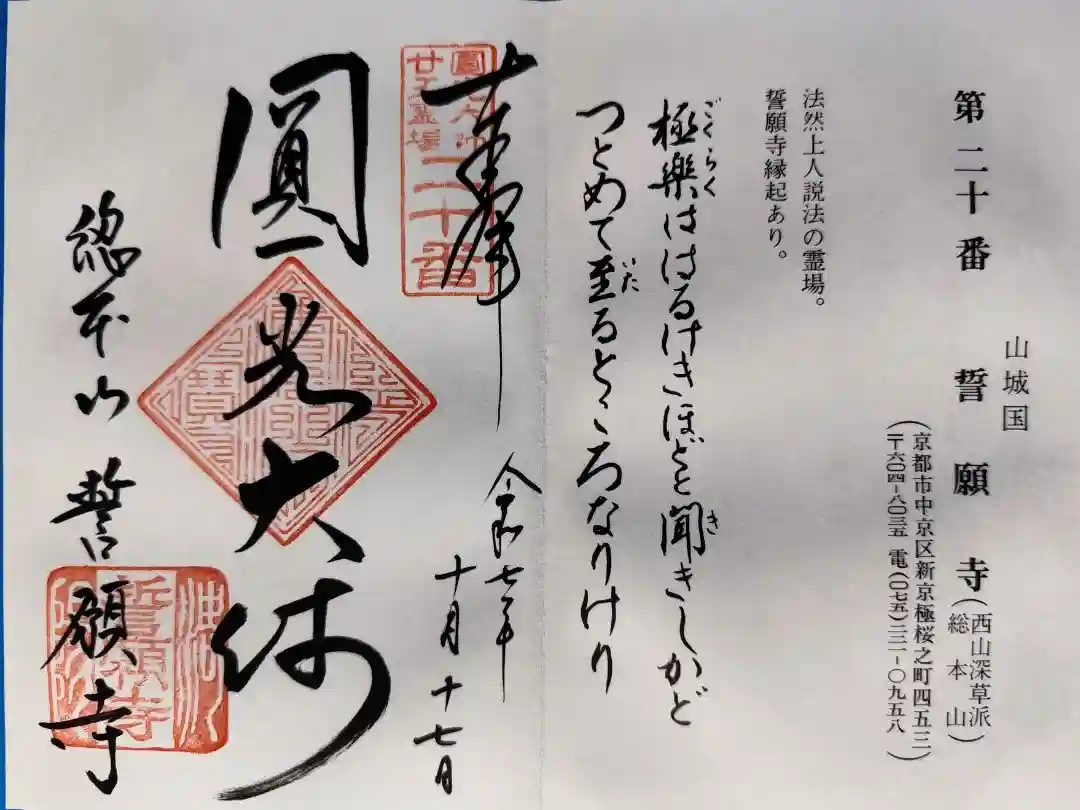 山城国
第二十番 誓願寺(西山深草派総本山)
(京都市中京区新京極桜之町四五三
〒六〇四-八〇三五 電(〇七五)二二一-〇九五八)
法然上人説法の霊場。
誓願寺縁起あり。
極楽ははるけきほどと聞きしかど
ごくらく
き
つとめて至るところなりけり
いた
奉拝
令和七年
十月十七日
圓光大師
廿五霊場
二十番
圓光大師
総本山 誓願寺
誓願寺